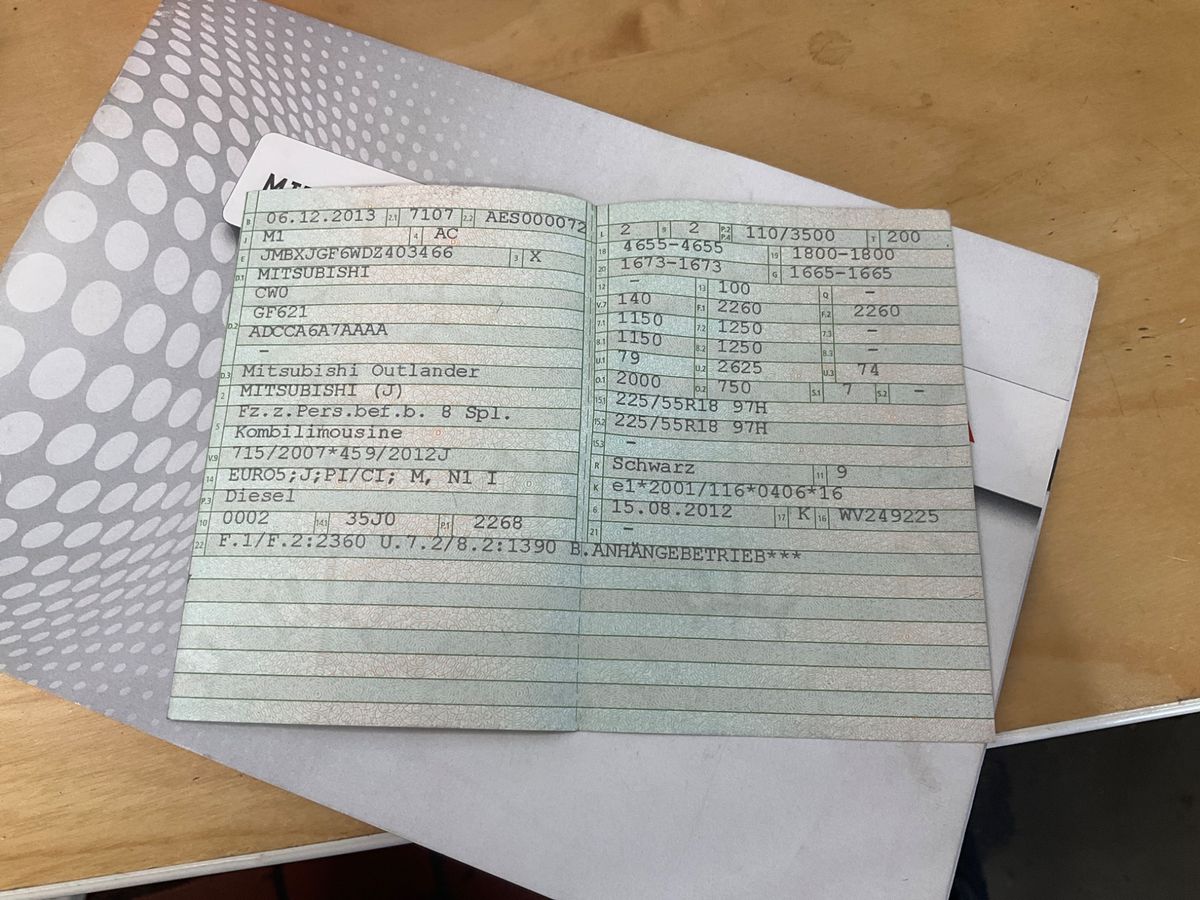 B 06.12.2013 2.1 7107 2.2 AES000072
J M1 4 AC
E JMBXJGF6WDZ403466 3 X
D.1 MITSUBISHI
CW0
GF621
D.2 ADCCA6A7AAAA
–
D.3 Mitsubishi Outlander
2 MITSUBISHI (J)
Fz.z.Pers.bef.b. 8 Spl.
5 Kombilimousine
V.9 715/2007*459/2012J
14 EURO5;J;PI/CI; M, N1 I
P.3 Diesel
10 0002 14.1 35J0 P.1 2268
22 F.1/F.2:2360 U.7.2/8.2:1390 B.ANHÄNGEBETRIEB***
L 2 9 2 P.2 P.4 110/3500 T 200
18 4655-4655 19 1800-1800
20 1673-1673 G 1665-1665
12 – 13 100 Q –
V.7 140 F.1 2260 F.2 2260
7.1 1150 7.2 1250 7.3 –
8.1 1150 8.2 1250 8.3 –
U.1 79 U.2 2625 U.3 74
O.1 2000 O.2 750 S.1 7 S.2 –
15.1 225/55R18 97H
15.2 225/55R18 97H
15.3 –
R Schwarz 11 9
K e1*2001/116*0406*16
6 15.08.2012 17 K 16 WV249225
21 –